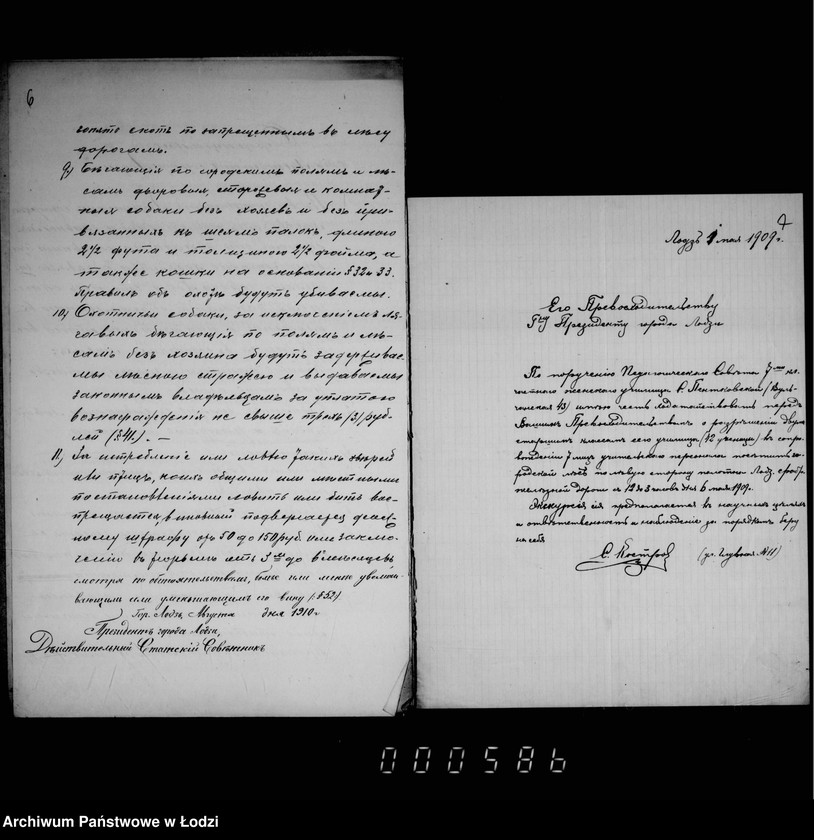 6
гонять скотъ по запрещеннымъ въ лѣсу
дорогамъ.
9) Бѣгающія по городскимъ полямъ и лѣ-
самъ дворовыя, сторожевыя и комнат-
ныя собаки безъ хозяевъ и безъ при-
вязанныхъ къ шеямъ палокъ, длиною
2 1/2 фута и толщиною 2 1/2 дюйма, а
также кошки на основаніи § 32 и 33.
Правилъ объ охотѣ будутъ убиваемы.
10) Охотничьи собаки, за исключеніемъ ля-
гавыхъ бѣгающія по полямъ и лѣ-
самъ безъ хозяина будутъ задерживае-
мы лѣсною стражею и выдаваемы
законнымъ владѣльцамъ за уплатою
вознагражденія не свыше трехъ /3/ руб-
лей (§ 41.). —
11) За истребленіе или ловлю такихъ звѣрей
или птицъ, коихъ общими или мѣстными
постановленіями ловить или бить вос-
прещается, виновный подвергается денеж-
ному штрафу отъ 50 до 150 руб. или заклю-
ченію въ тюрьмѣ отъ 3 до мѣсяцевъ
смотря по обстоятельствамъ, болѣе или менѣе увеличи-
вающимъ или уменьшающимъ его вину (§ 52)
Гор. Лодзь, Августа дня 1910 г.
Президентъ города Лодзи,
Дѣйствительный Статскій Совѣтникъ
7
Лодзь 1 мая 1909 г.
Его Превосходительству
Гну Президенту города Лодзи
По порученію Педагогическаго Совѣта 7-ми кл.
частнаго женскаго училища С. Пентковской /
43/ имѣю честь ходатайствовать передъ
Вашимъ Превосходительствомъ о разрѣшеніи двумъ
старшимъ классамъ сего училища /12 ученицъ/ въ сопро-
вожденіи 7 лицъ учительскаго персонала посѣтить го-
родской лѣсъ по лѣвую сторону полотна Лодз. фабр.
желѣзной дороги съ 12 до 3 часовъ дня 6 мая 1909 г.
Экскурсія предполагается въ научныхъ цѣляхъ
и отвѣтственность и наблюденіе за порядкомъ беру
на себя
С. (ул. № 11)
000586
Archiwum Państwowe w Łodzi